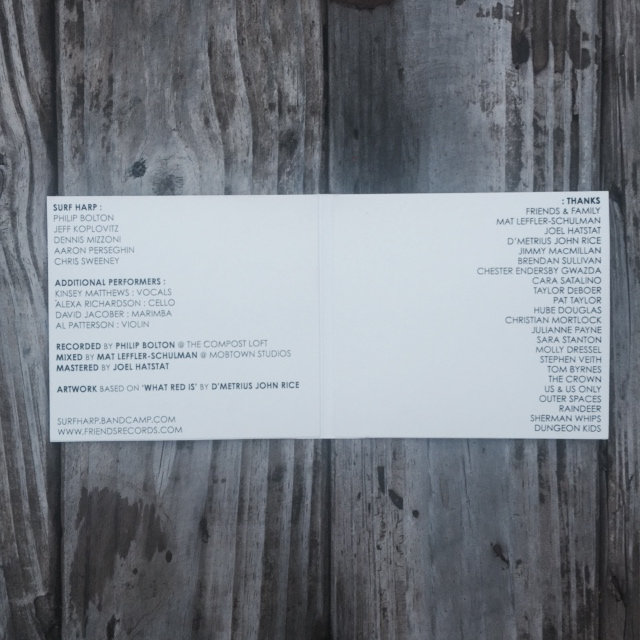 SURF HARP :
PHILIP BOLTON
JEFF KOPLOVITZ
DENNIS MIZZONI
AARON PERSEGHIN
CHRIS SWEENEY
ADDITIONAL PERFORMERS :
KINSEY MATTHEWS : VOCALS
ALEXA RICHARDSON : CELLO
DAVID JACOBER : MARIMBA
AL PATTERSON : VIOLIN
RECORDED BY PHILIP BOLTON @ THE COMPOST LOFT
MIXED BY MAT LEFFLER-SCHULMAN @ MOBTOWN STUDIOS
MASTERED BY JOEL HATSTAT
ARTWORK BASED ON 'WHAT RED IS' BY D'METRIUS JOHN RICE
SURFHARP.BANDCAMP.COM
WWW.FRIENDSRECORDS.COM
: THANKS
FRIENDS & FAMILY
MAT LEFFLER-SCHULMAN
JOEL HATSTAT
D'METRIUS JOHN RICE
JIMMY MACMILLAN
BRENDAN SULLIVAN
CHESTER ENDERSBY GWAZDA
CARA SATALINO
TAYLOR DEBOER
PAT TAYLOR
HUBE DOUGLAS
CHRISTIAN MORTLOCK
JULIANNE PAYNE
SARA STANTON
MOLLY DRESSEL
STEPHEN VEITH
TOM BYRNES
THE CROWN
US & US ONLY
OUTER SPACES
RAINDEER
SHERMAN WHIPS
DUNGEON KIDS